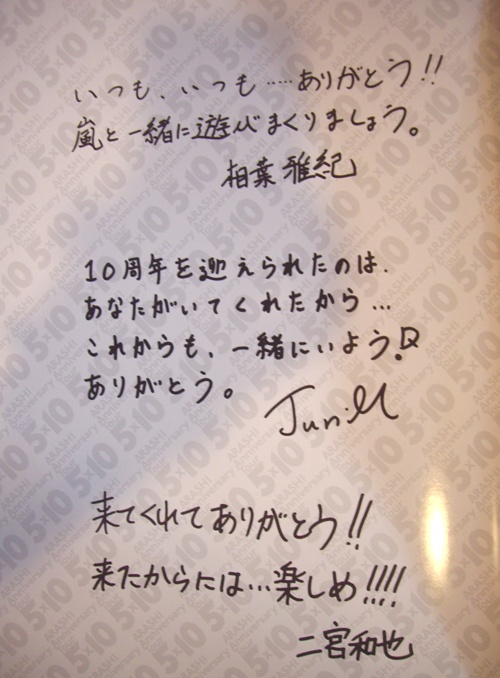 いつも、いつも……ありがとう!!
嵐と一緒に遊びまくりましょう。
相葉雅紀
10周年を迎えられたのは、
あなたがいてくれたから…
これからも、一緒にいよう。
ありがとう。
Jun.M
来てくれてありがとう!!
来たからには…楽しめ!!!!
二宮和也
5×10
ARASHI
Anniversary